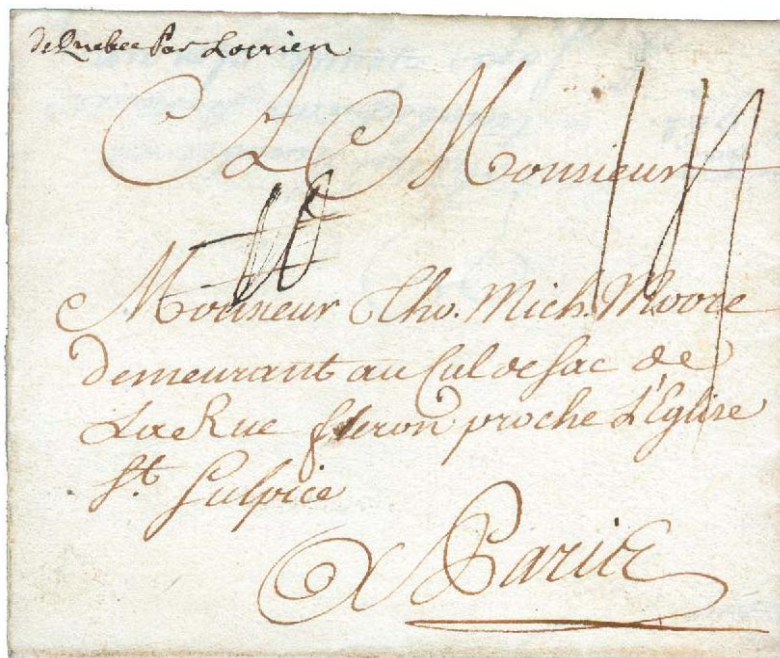 de Quebec Par Lorien
A Monsieur
Monsieur Tho. Mich. Moore
demeurant au Cul de sac de
La Rue feron proche L'Eglise
St. Sulpice
A Paris